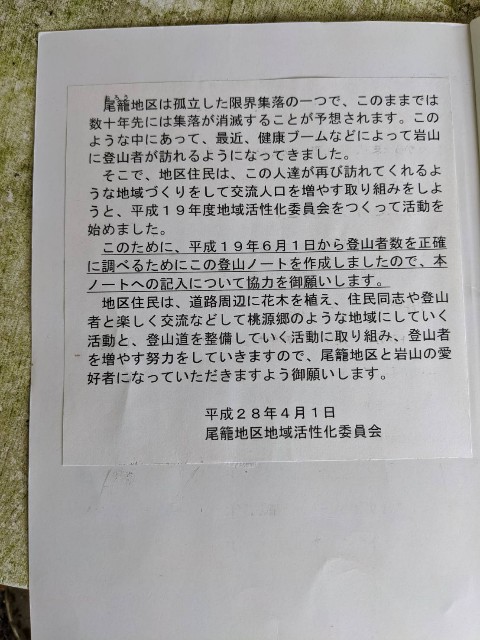 尾籠地区は孤立した限界集落の一つで、このままでは
数十年先には集落が消滅することが予想されます。この
ような中にあって、最近、健康ブームなどによって岩山
に登山者が訪れるようになってきました。
そこで、地区住民は、この人達が再び訪れてくれるよう
な地域づくりをして交流人口を増やす取り組みをしよ
うと、平成19年度地域活性化委員会をつくって活動を
始めました。
このために、平成19年6月1日から登山者数を正確
に調べるためにこの登山ノートを作成しましたので、本
ノートへの記入について協力を御願いします。
地区住民は、道路周辺に花木を植え、住民同志や登山
者と楽しく交流などして桃源郷のような地域にしていく
活動と、登山道を整備していく活動に取り組み、登山者
を増やす努力をしていきますので、尾籠地区と岩山の愛
好者になっていただきますよう御願いします。
平成28年4月1日
尾籠地区地域活性化委員会